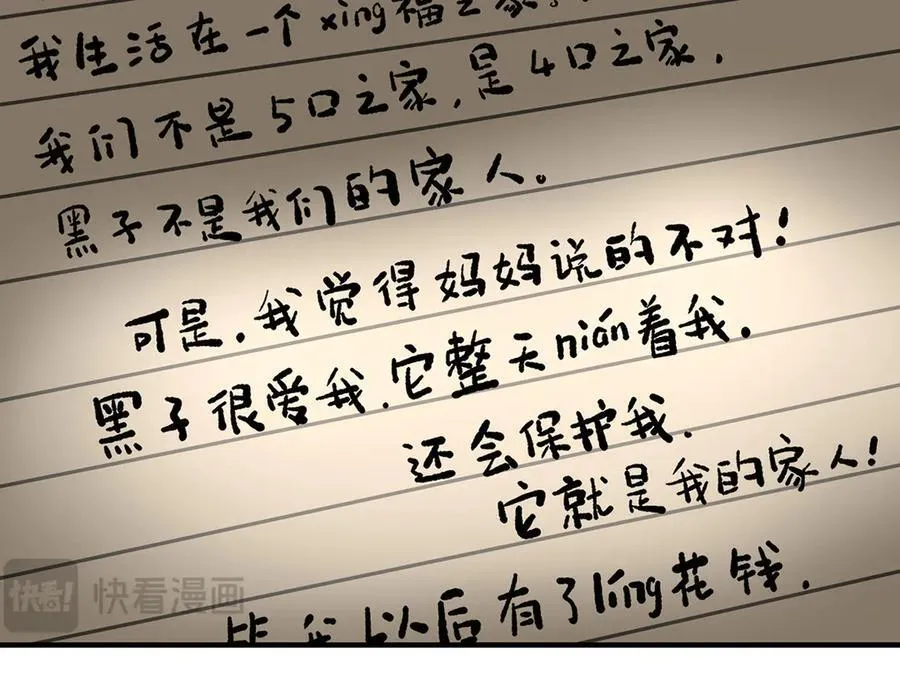 我生活在一个xing福之家。
我们不是5口之家,是4口之家,
黑子不是我们的家人。
可是,我觉得妈妈说的不对!
黑子很爱我,它整天nián着我,
还会保护我,
它就是我的家人!
等我以后有了líng花钱,
快看! 快看漫画